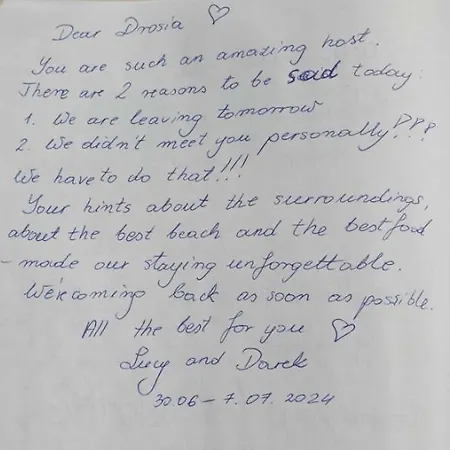 Dear Drosia ♡
You are such an amazing host.
There are 2 reasons to be sad today:
1. We are leaving tomorrow
2. We didn't meet you personally!???
We have to do that!!!
Your hints about the surroundings,
about the best beach and the best food
- made our staying unforgettable.
We're coming back as soon as possible.
All the best for you ♡
Lucy and Darek
30.06 – 7.07.2024